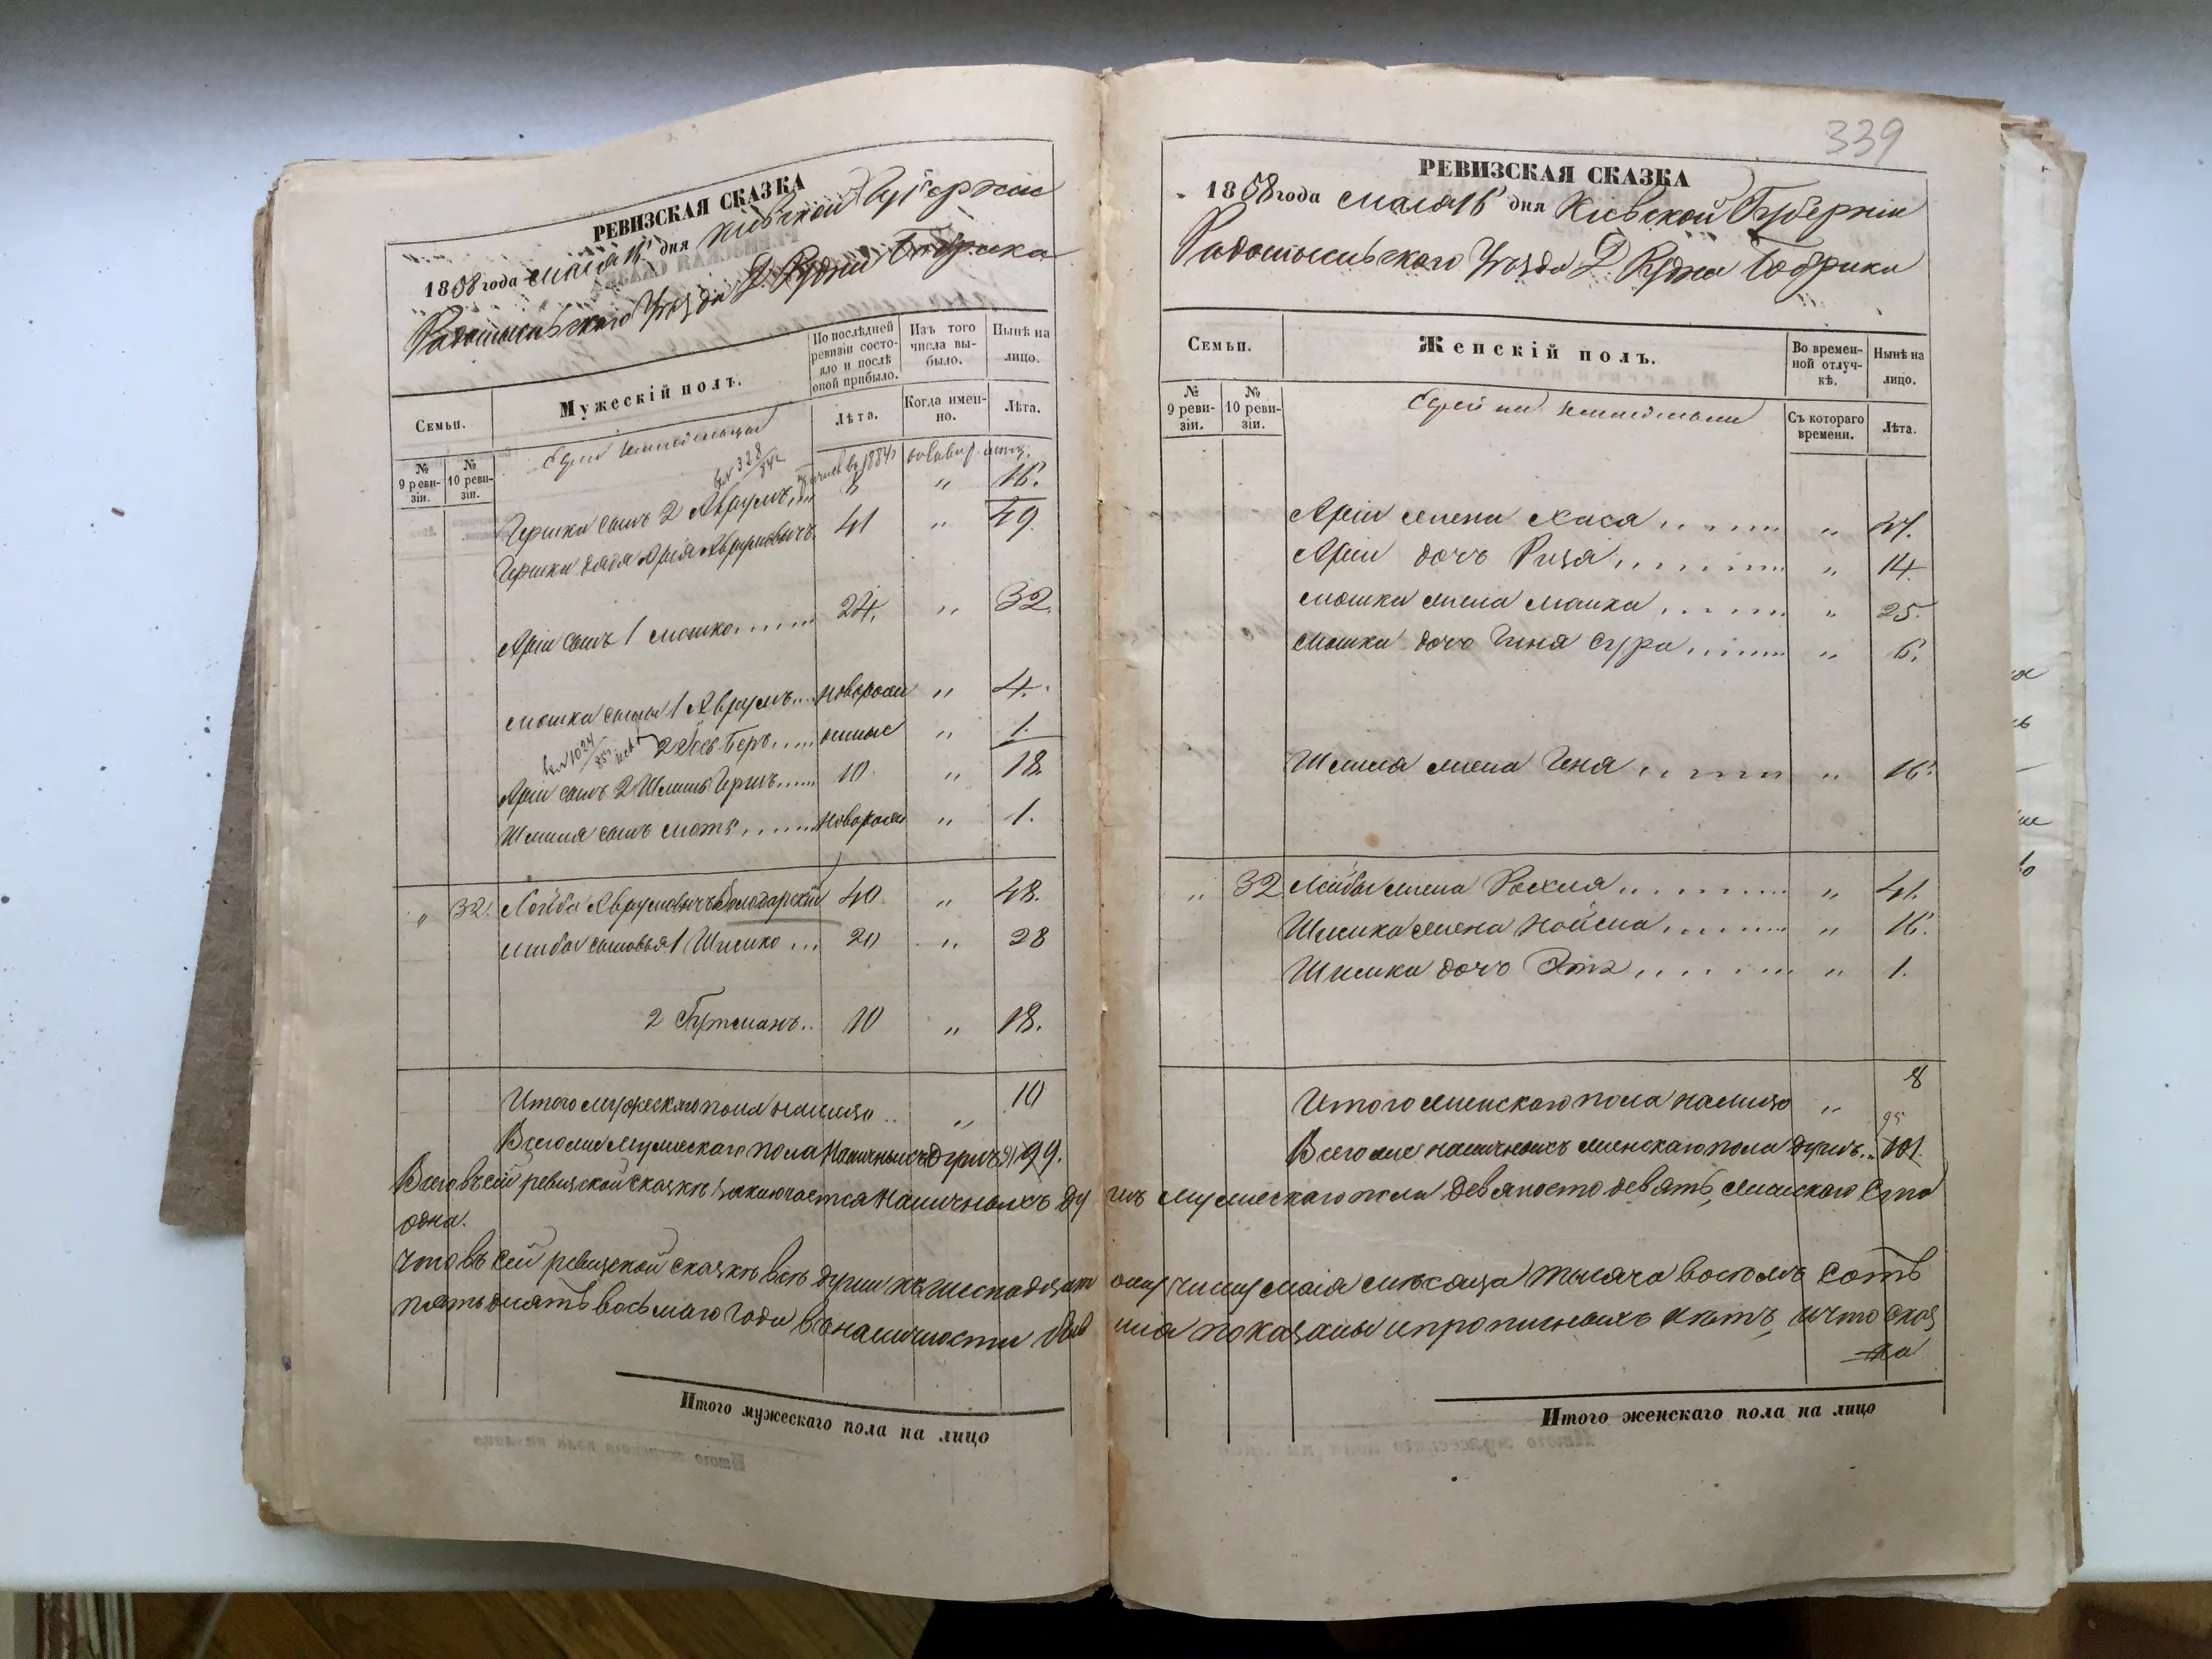 РЕВИЗСКАЯ СКАЗКА
1858 года мая 16 дня Кіевской Губерніи
Радомысльскаго Уѣзда Д. Рудни Бобрика
Семьи.
Мужескій полъ.
По послѣдней ревизіи состояло и послѣ оной прибыло.
Изъ того числа выбыло.
Нынѣ на лицо.
№ 9 ревизіи.
№ 10 ревизіи.
Евреи земледельцы
Лѣта.
Когда именно.
Лѣта.
Гершка сынъ 2 Аврумъ.... 8 „ 16.
Гершка дядя Арія Аврумовичъ 41 „ 49.
Аріи сынъ 1 Мошко....... 24. „ 32.
Мошка сыны 1 Аврумъ... новорож „ 4.
2 Іосъ Беръ..... „ 1.
Аріи сынъ 2 Шлиома Гершъ..... 10. „ 18.
Шлиома сынъ Мотя....... новорож „ 1.
„ 32. Лейба Аврумовичъ Володарскій 40. „ 48.
Лейбы сыновья 1 Шлиомко... 20 „ 28
2 Гутманъ.. 10 „ 18.
Итого мужескаго пола налицо .. „ 10
Всего же мужескаго пола наличныхъ душъ 99.
РЕВИЗСКАЯ СКАЗКА
339
1858 года мая 16 дня Кіевской Губерніи
Радомысльскаго Уѣзда Д. Рудни Бобрика
Семьи.
Женскій полъ.
Во временной отлучкѣ.
Нынѣ на лицо.
№ 9 ревизіи.
№ 10 ревизіи.
Съ котораго времени.
Лѣта.
Аріи жена Хася......... „ 47.
Аріи дочь Рися......... „ 14.
Мошки жена Малка....... „ 25.
Мошки дочь Гиня Сура...... „ 6.
Шлиома жена Геня....... „ 16.
„ 32. Лейбы жена Рыхля......... „ 41.
Шлиомка жена Нойма........ „ 16.
Шлиомки дочь Этя........ „ 1.
Итого женскаго пола налицо „ 8
95
Всего же наличныхъ женскаго пола душъ.. 101.
Всего въ сей ревизской сказкѣ заключается наличныхъ душъ мужескаго пола девяносто девять, женскаго сто
одна.
Что въ сей ревизской сказкѣ всѣ души къ шеснадцатому числу маія мѣсяца тысяча восемь сотъ
пятьдесятъ восьмаго года въ наличности показаны и прописныхъ нѣтъ, и что сказ
ка
Итого мужескаго пола на лицо
Итого женскаго пола на лицо